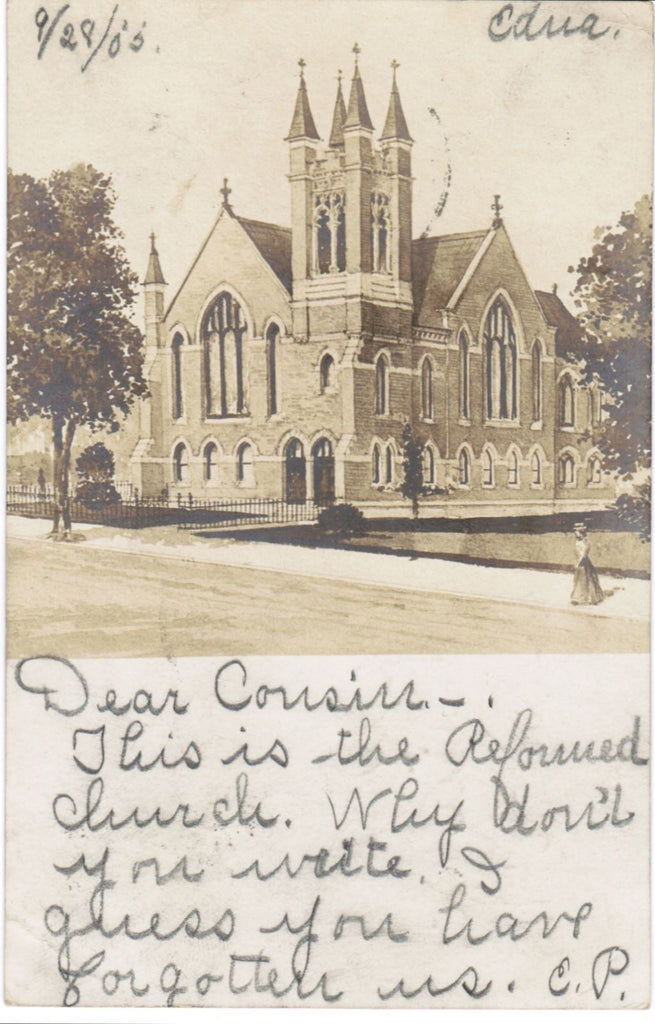 9/28/05.
Edna.
Dear Cousin.-.
This is the Reformed
church. Why don't
you write. I
guess you have
forgotten us. E.P.